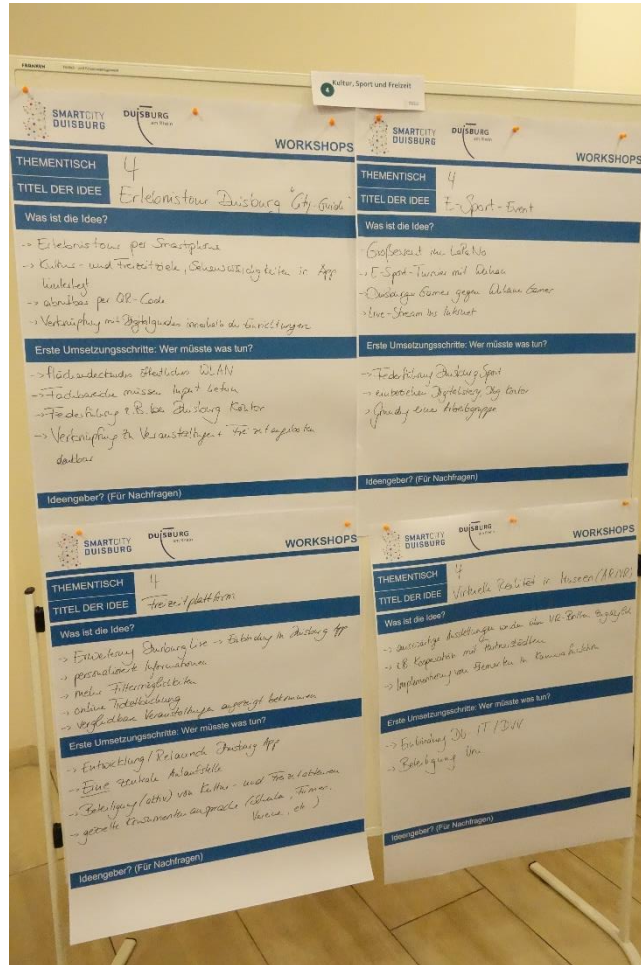 FRANKEN
4 Kultur, Sport und Freizeit
SMARTCITY
DUISBURG
DUISBURG
am Rhein
WORKSHOPS
THEMENTISCH 4
TITEL DER IDEE Erlebnistour Duisburg "City-Guide"
Was ist die Idee?
-> Erlebnistour per Smartphone
-> Kultur- und Freizeitziele, Sehenswürdigkeiten in App
hinterlegt
-> abrufbar per QR-Code
-> Verknüpfung mit Digitalguides innerhalb der Einrichtungen
Erste Umsetzungsschritte: Wer müsste was tun?
-> flächendeckendes öffentliches WLAN
-> Fachbereiche müssen Input liefern
-> Federführung z.B. bei Duisburg Kontor
-> Verknüpfung zu Veranstaltungen + Freizeitangeboten
denkbar
Ideengeber? (Für Nachfragen)
SMARTCITY
DUISBURG
DUISBURG
am Rhein
WORKSHOPS
THEMENTISCH 4
TITEL DER IDEE E-Sport-Event
Was ist die Idee?
- Großevent im LaPaNo
-> E-Sport-Turnier mit Wuhan
-> Duisburger Gamer gegen Wuhan Gamer
-> Live-Stream ins Internet
Erste Umsetzungsschritte: Wer müsste was tun?
-> Federführung Duisburg Sport
-> einbeziehen Digitalisierung, Dbg Kontor
-> Gründung einer Arbeitsgruppe
Ideengeber? (Für Nachfragen)
SMARTCITY
DUISBURG
DUISBURG
am Rhein
WORKSHOPS
THEMENTISCH 4
TITEL DER IDEE Freizeitplattform
Was ist die Idee?
-> Erweiterung Duisburg Live -> Einbindung in Duisburg App
-> personalisierte Informationen
-> mehr Filtermöglichkeiten
-> online Ticketbuchung
-> vergleichbare Veranstaltungen angezeigt bekommen
Erste Umsetzungsschritte: Wer müsste was tun?
-> Entwicklung / Relaunch Duisburg App
-> Eine zentrale Anlaufstelle
-> Beteiligung (aktiv) von Kultur- und Freizeitakteuren
-> gezielte Konsumentenansprache (Schulen, Firmen,
Vereine, etc.)
Ideengeber? (Für Nachfragen)
SMARTCITY
DUISBURG
DUISBURG
am Rhein
WORKSHOPS
THEMENTISCH 4
TITEL DER IDEE Virtuelle Realität in Museen (AR/VR)
Was ist die Idee?
-> auswärtige Ausstellungen werden über VR-Brillen zugänglich
-> z.B. Kooperation mit Partnerstädten
-> Implementierung von Elementen in Kamerafunktion
Erste Umsetzungsschritte: Wer müsste was tun?
-> Einbindung Dbg IT / DVV
-> Beteiligung Uni
Ideengeber? (Für Nachfragen)